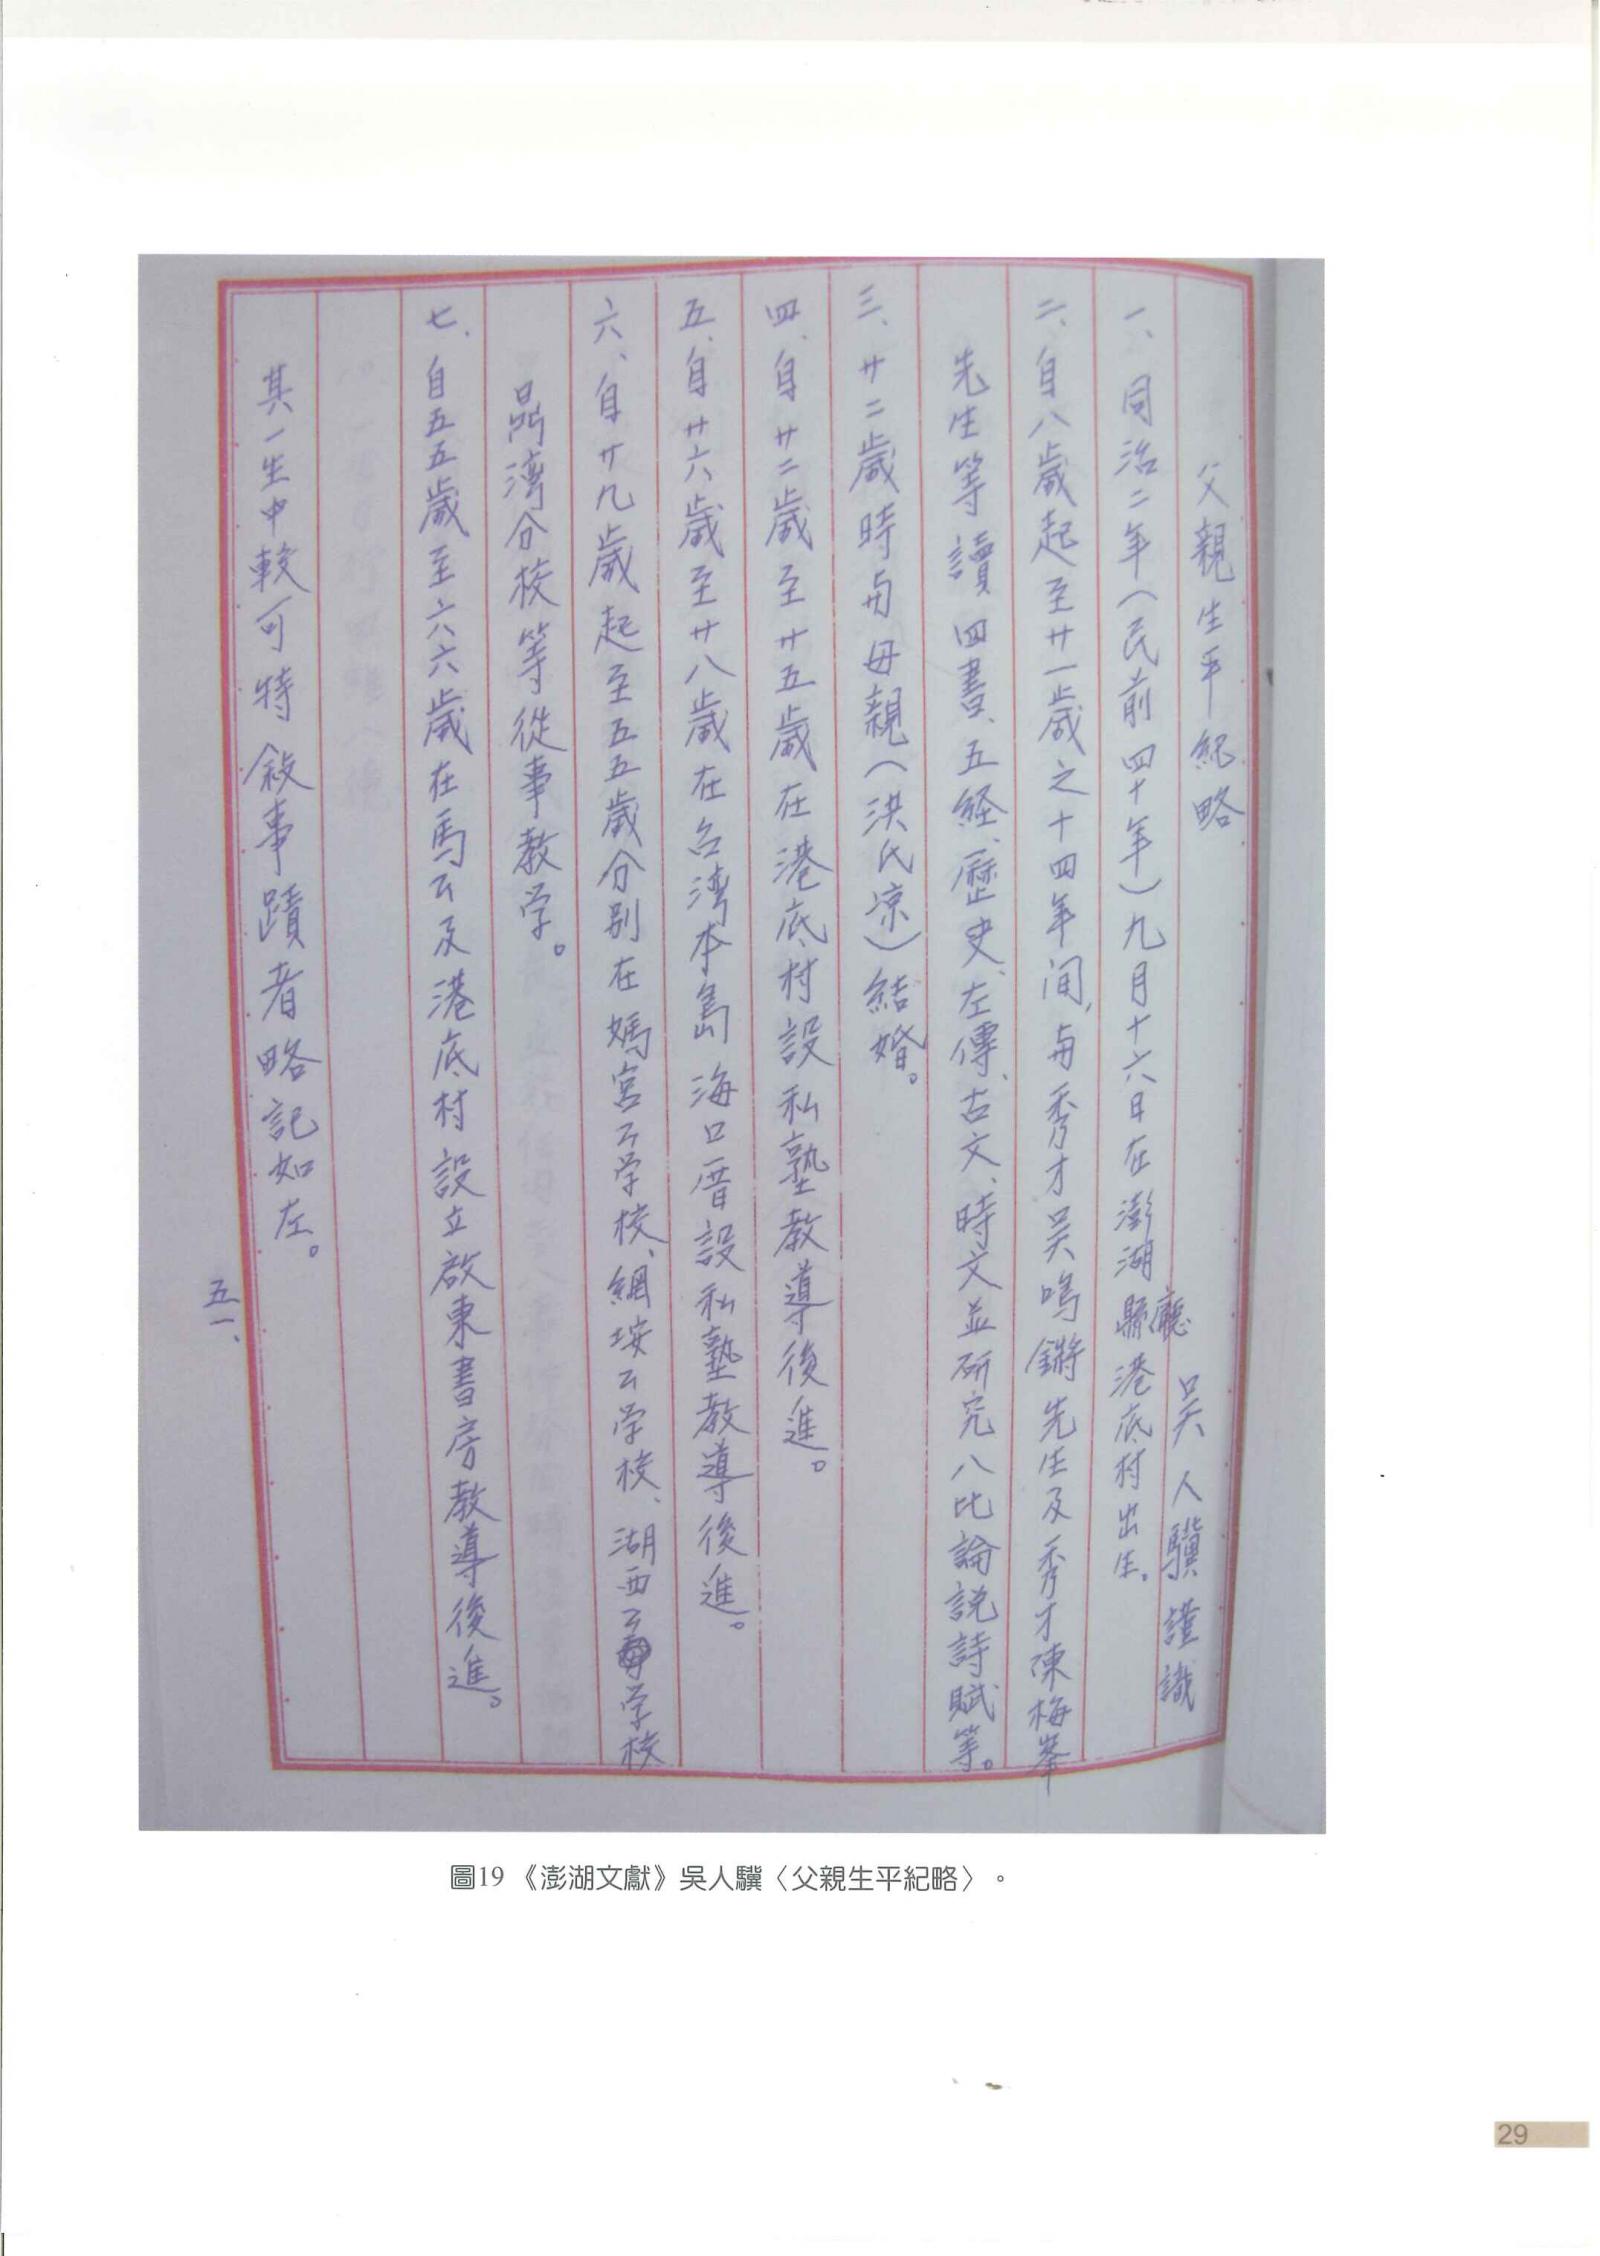 父親生平紀略
吳人驥謹識
一、同治二年(民前四十年)九月十六日在澎湖縣廳港底村出生。
二、自八歲起至廿一歲之十四年间,与秀才吴鳴鏘先生及秀才陳梅峯
先生等讀四書、五経、歷史、左傳、古文、時文並研究八比論説詩賦等。
三、廿二歲時与母親(洪氏凉)結婚。
四、自廿二歲至廿五歲在港底村設私塾教導後進。
五、自廿六歲至廿八歲在台湾本島海口厝設私塾教導後進。
六、自廿九歲起至五五歲分別在媽宮公学校、網垵公学校、湖西公学校
鼎湾分校等從事教学。
七、自五五歲至六六歲在馬公及港底村設立啟東書房教導後進。
其一生中較可特敘事蹟者略記如左。
五一、
圖19 《澎湖文獻》吳人驥〈父親生平紀略〉。
29